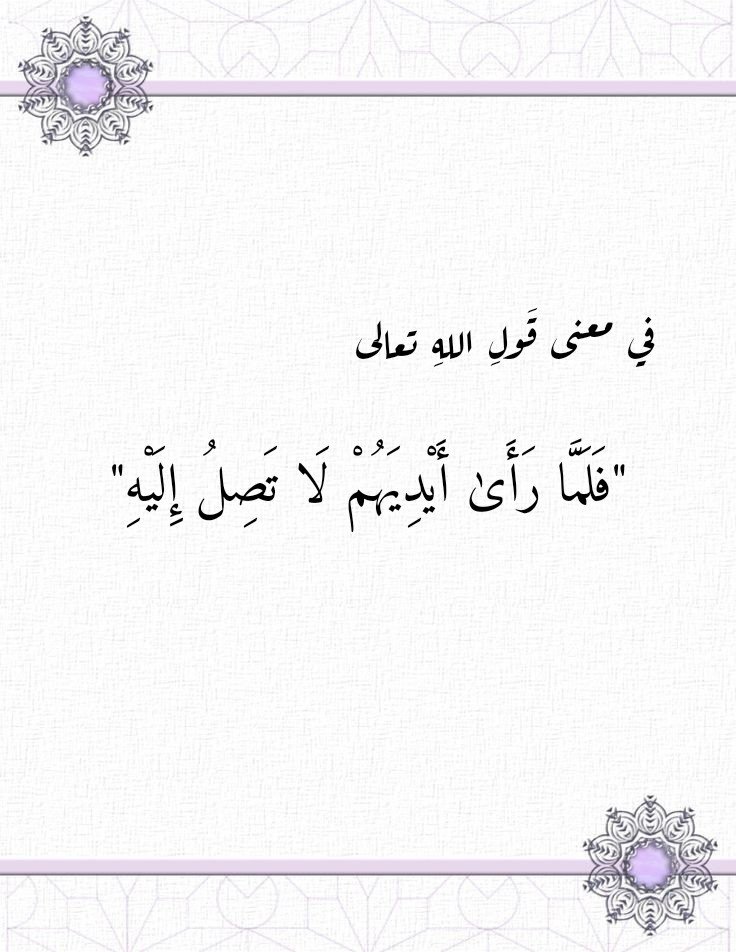 في معنى قَولِ اللهِ تعالى
"فَلَمَّا رَأَىٰ أَيْدِيَهُمْ لَا تَصِلُ إِلَيْهِ"